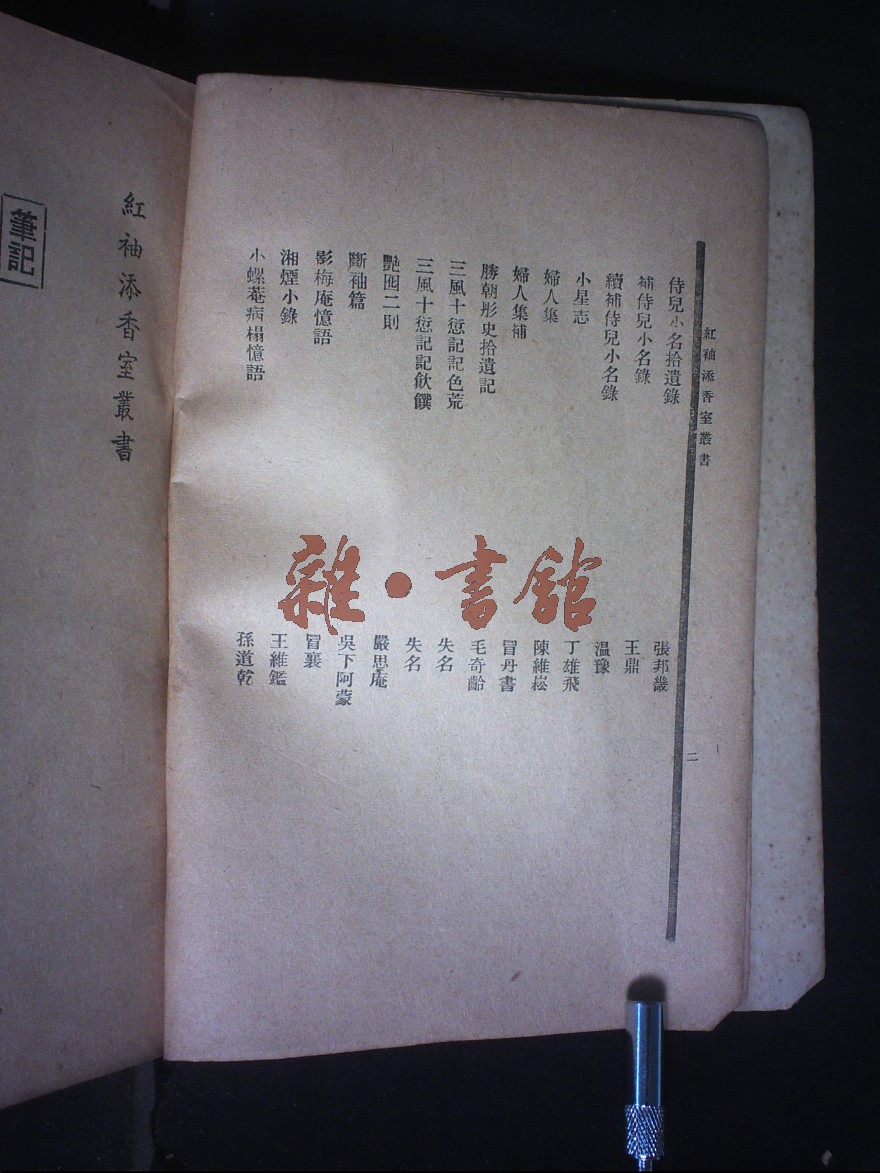 紅袖添香室叢書
二
侍兒小名拾遺錄 張邦畿
補侍兒小名錄 王鼎
續補侍兒小名錄 溫豫
小星志 丁雄飛
婦人集 陳維崧
婦人集補 冒丹書
勝朝彤史拾遺記 毛奇齡
三風十愆記記色荒 失名
三風十愆記記飲饌 失名
艷囮二則 嚴思庵
斷袖篇 吳下阿蒙
影梅庵憶語 冒襄
湘煙小錄 王維鑑
小螺菴病榻憶語 孫道乾
紅袖添香室叢書
筆記
雜·書館